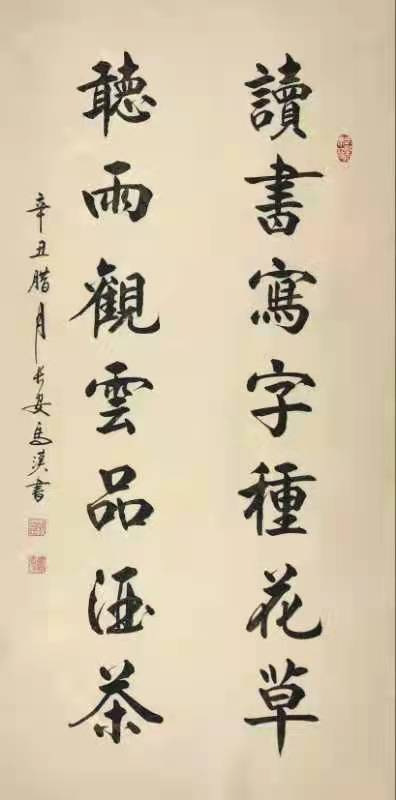 讀書寫字種花草
聽雨觀雲品酒茶
辛丑腊月长安馬漢書